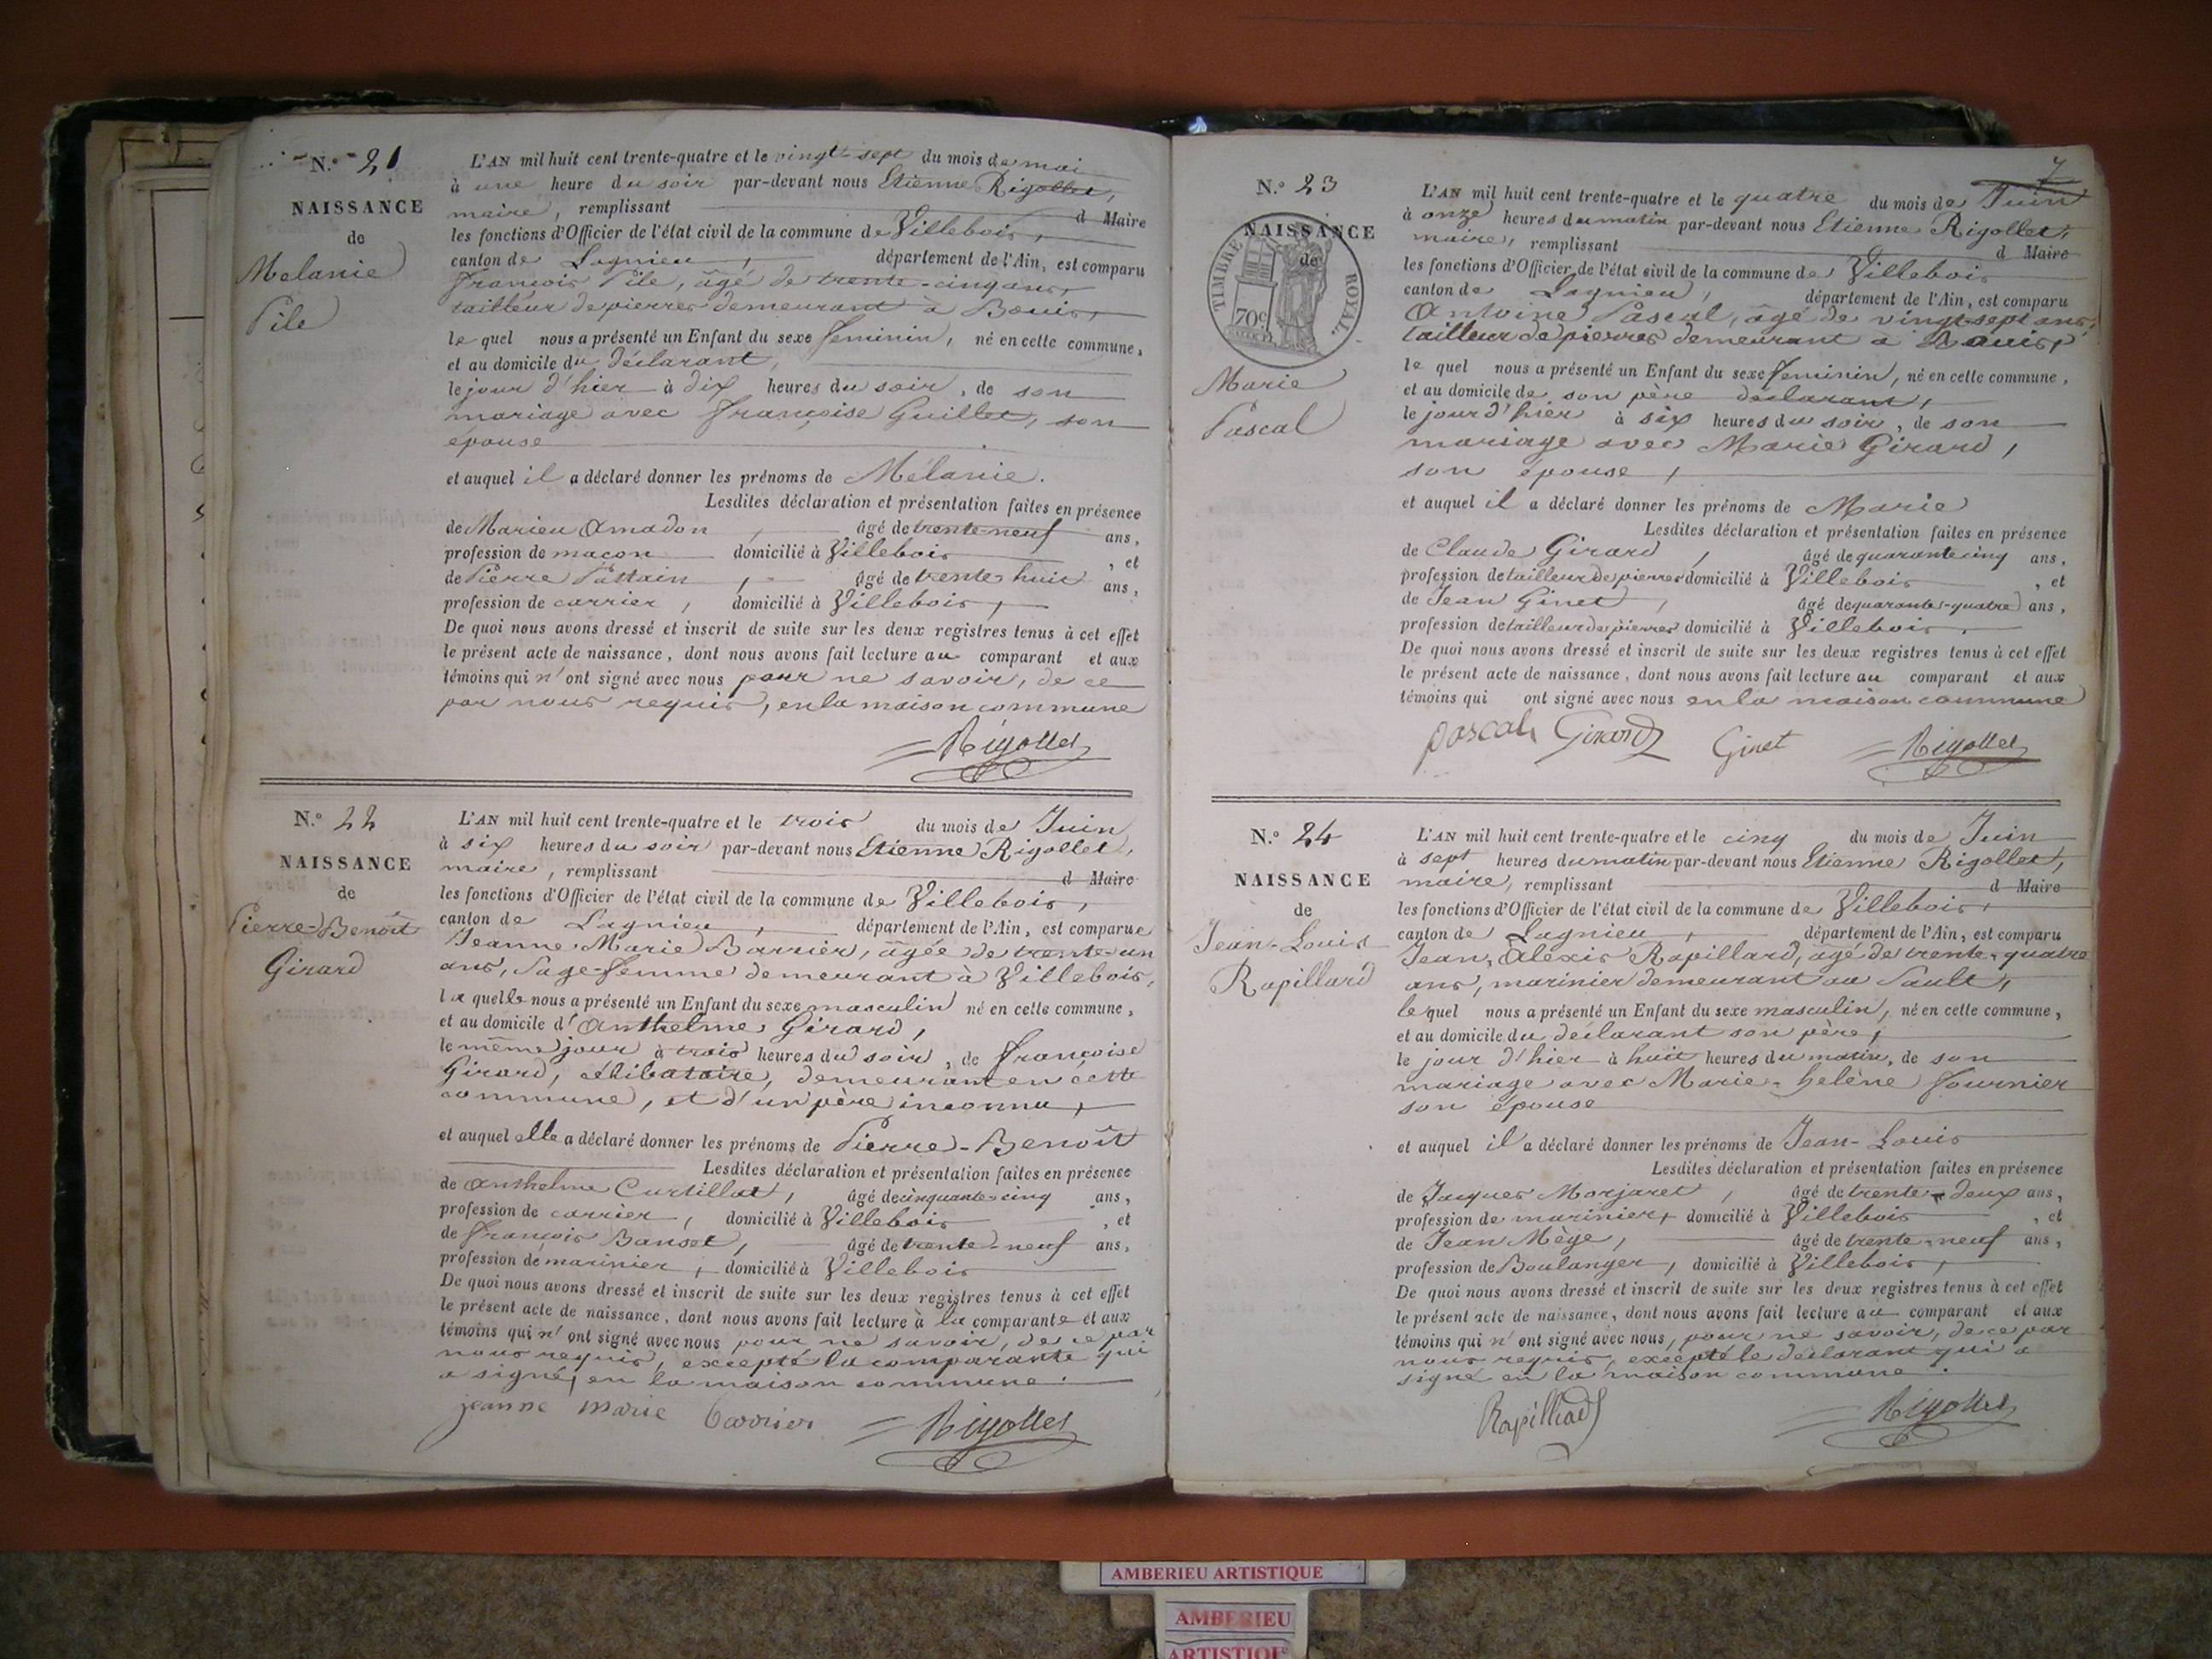 N.° 21
NAISSANCE
de
Melanie
Pile
L'AN mil huit cent trente-quatre et le vingt-sept du mois de mai
à une heure du soir par-devant nous Etienne Rigollet,
maire, remplissant d Maire
les fonctions d'Officier de l'état civil de la commune de Villebois,
canton de Lagnieu, département de l'Ain, est comparu
françois Pile, âgé de trente-cinq ans,
tailleur de pierres demeurant à Bouis,
le quel nous a présenté un Enfant du sexe feminin, né en cette commune,
et au domicile du déclarant,
le jour d'hier à dix heures du soir, de son
mariage avec françoise Guillet, son
épouse
et auquel il a déclaré donner les prénoms de Mélanie.
Lesdites déclaration et présentation faites en présence
de Marieu Amadon, âgé de trente-neuf ans,
profession de maçon domicilié à Villebois, et
de Pierre Pattain, âgé de trente-huit ans,
profession de carrier, domicilié à Villebois,
De quoi nous avons dressé et inscrit de suite sur les deux registres tenus à cet effet
le présent acte de naissance, dont nous avons fait lecture au comparant et aux
témoins qui n'ont signé avec nous pour ne savoir, de ce
par nous requis, en la maison commune
Rigollet
N.° 22
NAISSANCE
de
Pierre-Benoît
Girard
L'AN mil huit cent trente-quatre et le trois du mois de Juin
à six heures du soir par-devant nous Etienne Rigollet,
maire, remplissant d Maire
les fonctions d'Officier de l'état civil de la commune de Villebois,
canton de Lagnieu, département de l'Ain, est comparue
Jeanne Marie Barrier, âgée de trente-un
ans, Sage-femme demeurant à Villebois,
la quelle nous a présenté un Enfant du sexe masculin né en cette commune,
et au domicile d'Anthelme Girard,
le même jour à trois heures du soir, de françoise
Girard, célibataire, demeurant en cette
commune, et d'un père inconnu,
et auquel elle a déclaré donner les prénoms de Pierre-Benoît
Lesdites déclaration et présentation faites en présence
de Anthelme Curtillat, âgé de cinquante-cinq ans,
profession de carrier, domicilié à Villebois, et
de françois Banset, âgé de trente-neuf ans,
profession de marinier, domicilié à Villebois
De quoi nous avons dressé et inscrit de suite sur les deux registres tenus à cet effet
le présent acte de naissance, dont nous avons fait lecture à la comparante et aux
témoins qui n'ont signé avec nous pour ne savoir, de ce par
nous requis, excepté la comparante qui
a signé, en la maison commune.
jeanne marie barrier Rigollet
7
N.° 23
NAISSANCE
de
TIMBRE ROYAL
70c
Marie
Pascal
L'AN mil huit cent trente-quatre et le quatre du mois de Juin
à onze heures du matin par-devant nous Etienne Rigollet,
maire, remplissant d Maire
les fonctions d'Officier de l'état civil de la commune de Villebois
canton de Lagnieu, département de l'Ain, est comparu
Antoine Pascal, âgé de vingt-sept ans,
tailleur de pierres demeurant à Bouis,
le quel nous a présenté un Enfant du sexe feminin, né en cette commune,
et au domicile de son père déclarant,
le jour d'hier à six heures du soir, de son
mariage avec Marie Girard,
son épouse,
et auquel il a déclaré donner les prénoms de Marie
Lesdites déclaration et présentation faites en présence
de Claude Girard, âgé de quarante cinq ans,
profession de tailleur de pierres domicilié à Villebois, et
de Jean Ginet, âgé de quarante-quatre ans,
profession de tailleur de pierres domicilié à Villebois.
De quoi nous avons dressé et inscrit de suite sur les deux registres tenus à cet effet
le présent acte de naissance, dont nous avons fait lecture au comparant et aux
témoins qui ont signé avec nous en la maison commune
pascal Girard Ginet Rigollet
N.° 24
NAISSANCE
de
Jean-Louis
Rapillard
L'AN mil huit cent trente-quatre et le cinq du mois de Juin
à sept heures du matin par-devant nous Etienne Rigollet,
maire, remplissant d Maire
les fonctions d'Officier de l'état civil de la commune de Villebois,
canton de Lagnieu, département de l'Ain, est comparu
Jean, Aléxis Rapillard, âgé de trente-quatre
ans, marinier demeurant au Sault,
le quel nous a présenté un Enfant du sexe masculin, né en cette commune,
et au domicile du déclarant son père,
le jour d'hier à huit heures du matin, de son
mariage avec Marie-helène fournier
son épouse
et auquel il a déclaré donner les prénoms de Jean-Louis
Lesdites déclaration et présentation faites en présence
de Jacques Morjaret, âgé de trente-deux ans,
profession de marinier, domicilié à Villebois, et
de Jean Mège, âgé de trente-neuf ans,
profession de Boulanger, domicilié à Villebois,
De quoi nous avons dressé et inscrit de suite sur les deux registres tenus à cet effet
le présent acte de naissance, dont nous avons fait lecture au comparant et aux
témoins qui n'ont signé avec nous, pour ne savoir, de ce par
nous requis, excepté le déclarant qui a
signé en la maison commune.
Rapilliad Rigollet
AMBERIEU ARTISTIQUE
AMBERIEU
ARTISTIQUE